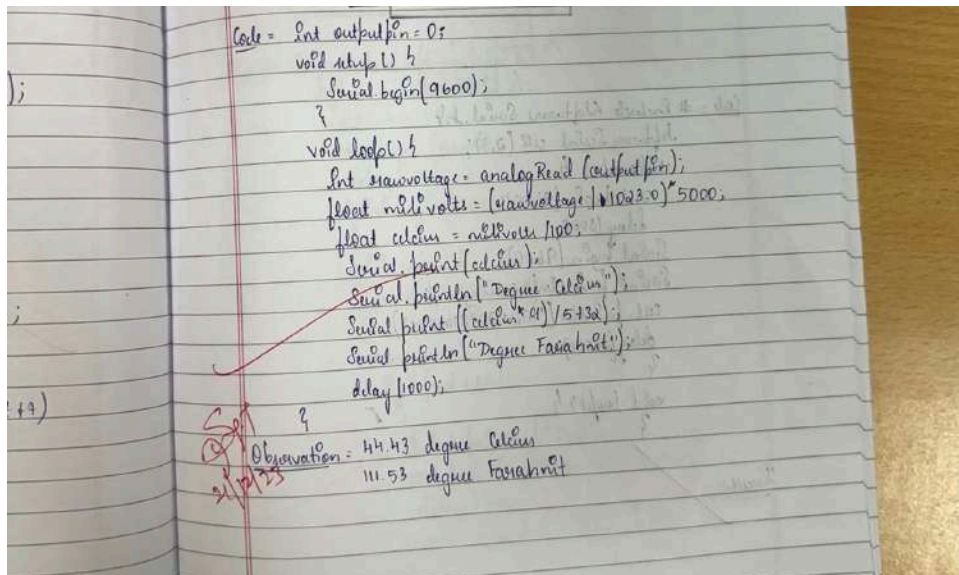 );
;
+9)
Code = int outputpin = 0;
void setup() {
Serial.begin(9600);
}
void loop() {
int rawvoltage = analogRead (outputpin);
float milivolts = (rawvoltage / 1023.0)* 5000;
float celcius = milivolts /100;
Serial.print(celcius);
Serial.println("Degree Celcius");
Serial print ((celcius* 9)/5+32);
Serial println("Degree Farahnit");
delay (1000);
}
Observation = 44.43 degree Celcius
111.53 degree Farahnit